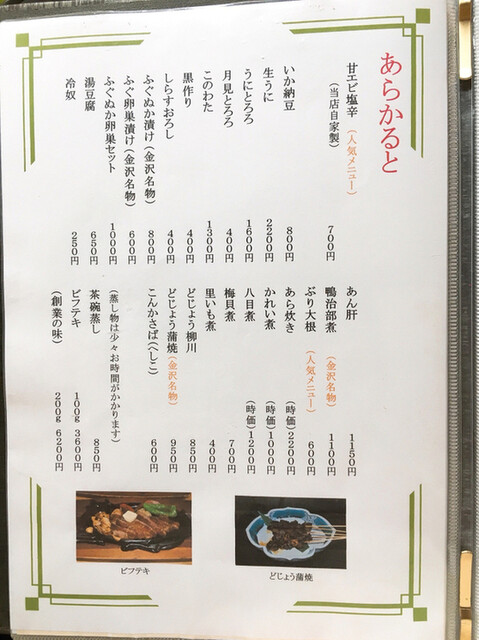 あらかると
甘エビ塩辛（当店自家製）（人気メニュー） 700円
いか納豆 800円
生うに 2200円
うにとろろ 1600円
月見とろろ 400円
このわた 1300円
黒作り 400円
しらすおろし 400円
ふぐぬか漬け（金沢名物） 800円
ふぐ卵巣漬け（金沢名物） 600円
ふぐぬか卵巣セット 1000円
湯豆腐 650円
冷奴 250円
あん肝 1150円
鴨治部煮（金沢名物） 1100円
ぶり大根（人気メニュー） 600円
あら炊き（時価）2200円
かれい煮（時価）1000円
八目煮（時価）1200円
梅貝煮 700円
里いも煮 400円
どじょう柳川 850円
どじょう蒲焼（金沢名物） 950円
こんかさば（へしこ） 600円
（蒸し物は少々お時間がかかります）
茶碗蒸し 850円
ビフテキ 100g 3600円
（創業の味） 200g 6200円
ビフテキ
どじょう蒲焼